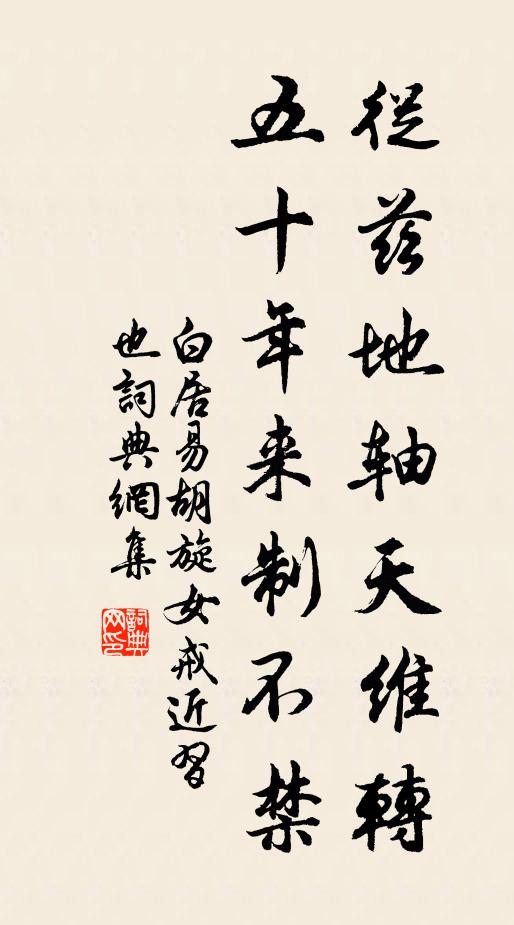 從茲地軸天維轉
五十年来制不禁
白居易胡旋女戒近習
也詞典網集
詞典
网印